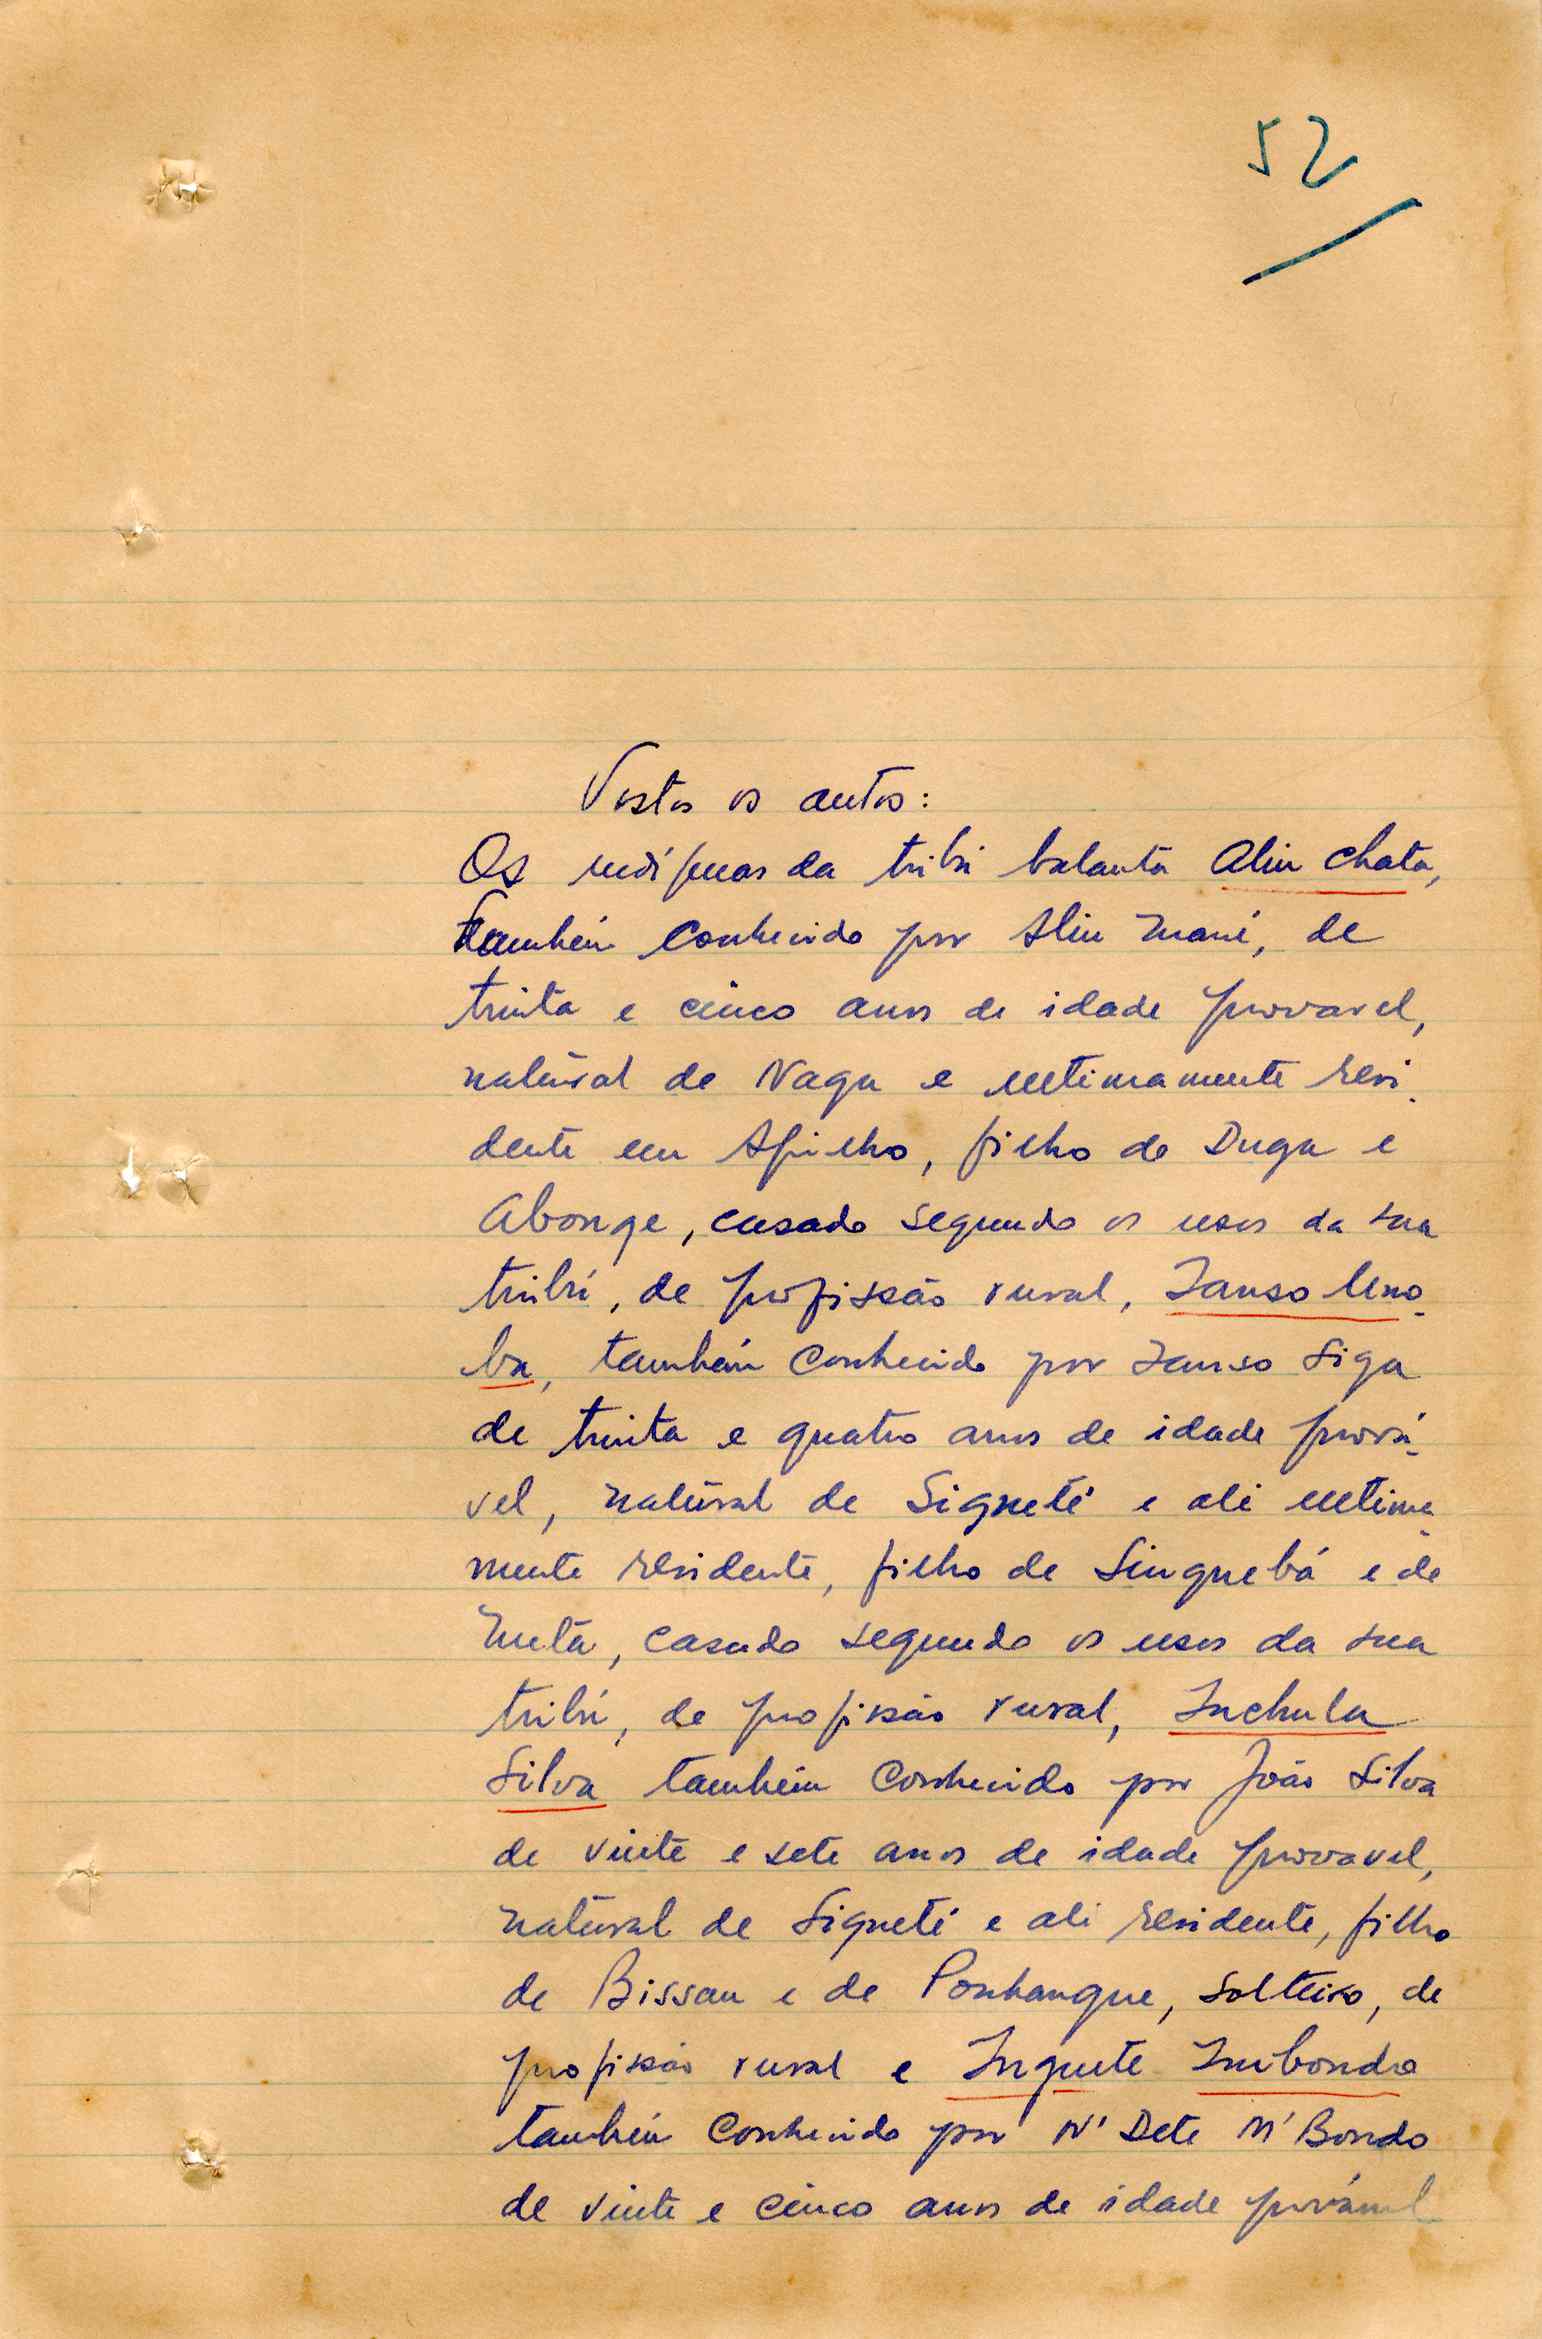 52
Vistos os autos:
Os indígenas da tribú balanta Aliu Chata,
também conhecido por Aliu Mané, de
trinta e cinco anos de idade provavel,
natural de Naga e ultimamente resi-
dente em Afilho, filho de Duga e
Abonge, casado segundo os usos da sua
tribú, de profissão rural, Zauso Uno-
ba, também conhecido por Zauso Siga
de trinta e quatro anos de idade prová-
vel, natural de Sigueté e ali ultima-
mente residente, filho de Singuebá e de
casado segundo os usos da sua
tribú, de profissão rural, Inchula
Silva também conhecido por João Silva
de vinte e sete anos de idade provavel,
natural de Sigueté e ali residente, filho
de Bissau e de Ponhangue, solteiro, de
profissão rural e Inquete Imbondo
também conhecido por N' Dete M' Bondo
de vinte e cinco anos de idade provável